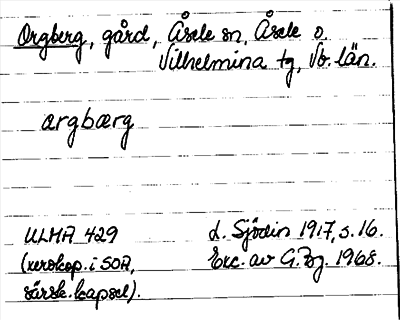 Orgberg, gård, Åsele sn, Åsele o.
Vilhelmina tg, Vb. län.
argbærg
ULMA 429
(xerokop. i SOA,
särsk. kapsel).
L. Sjödin 1917, s. 16.
Exc. av G. Bj. 1968.